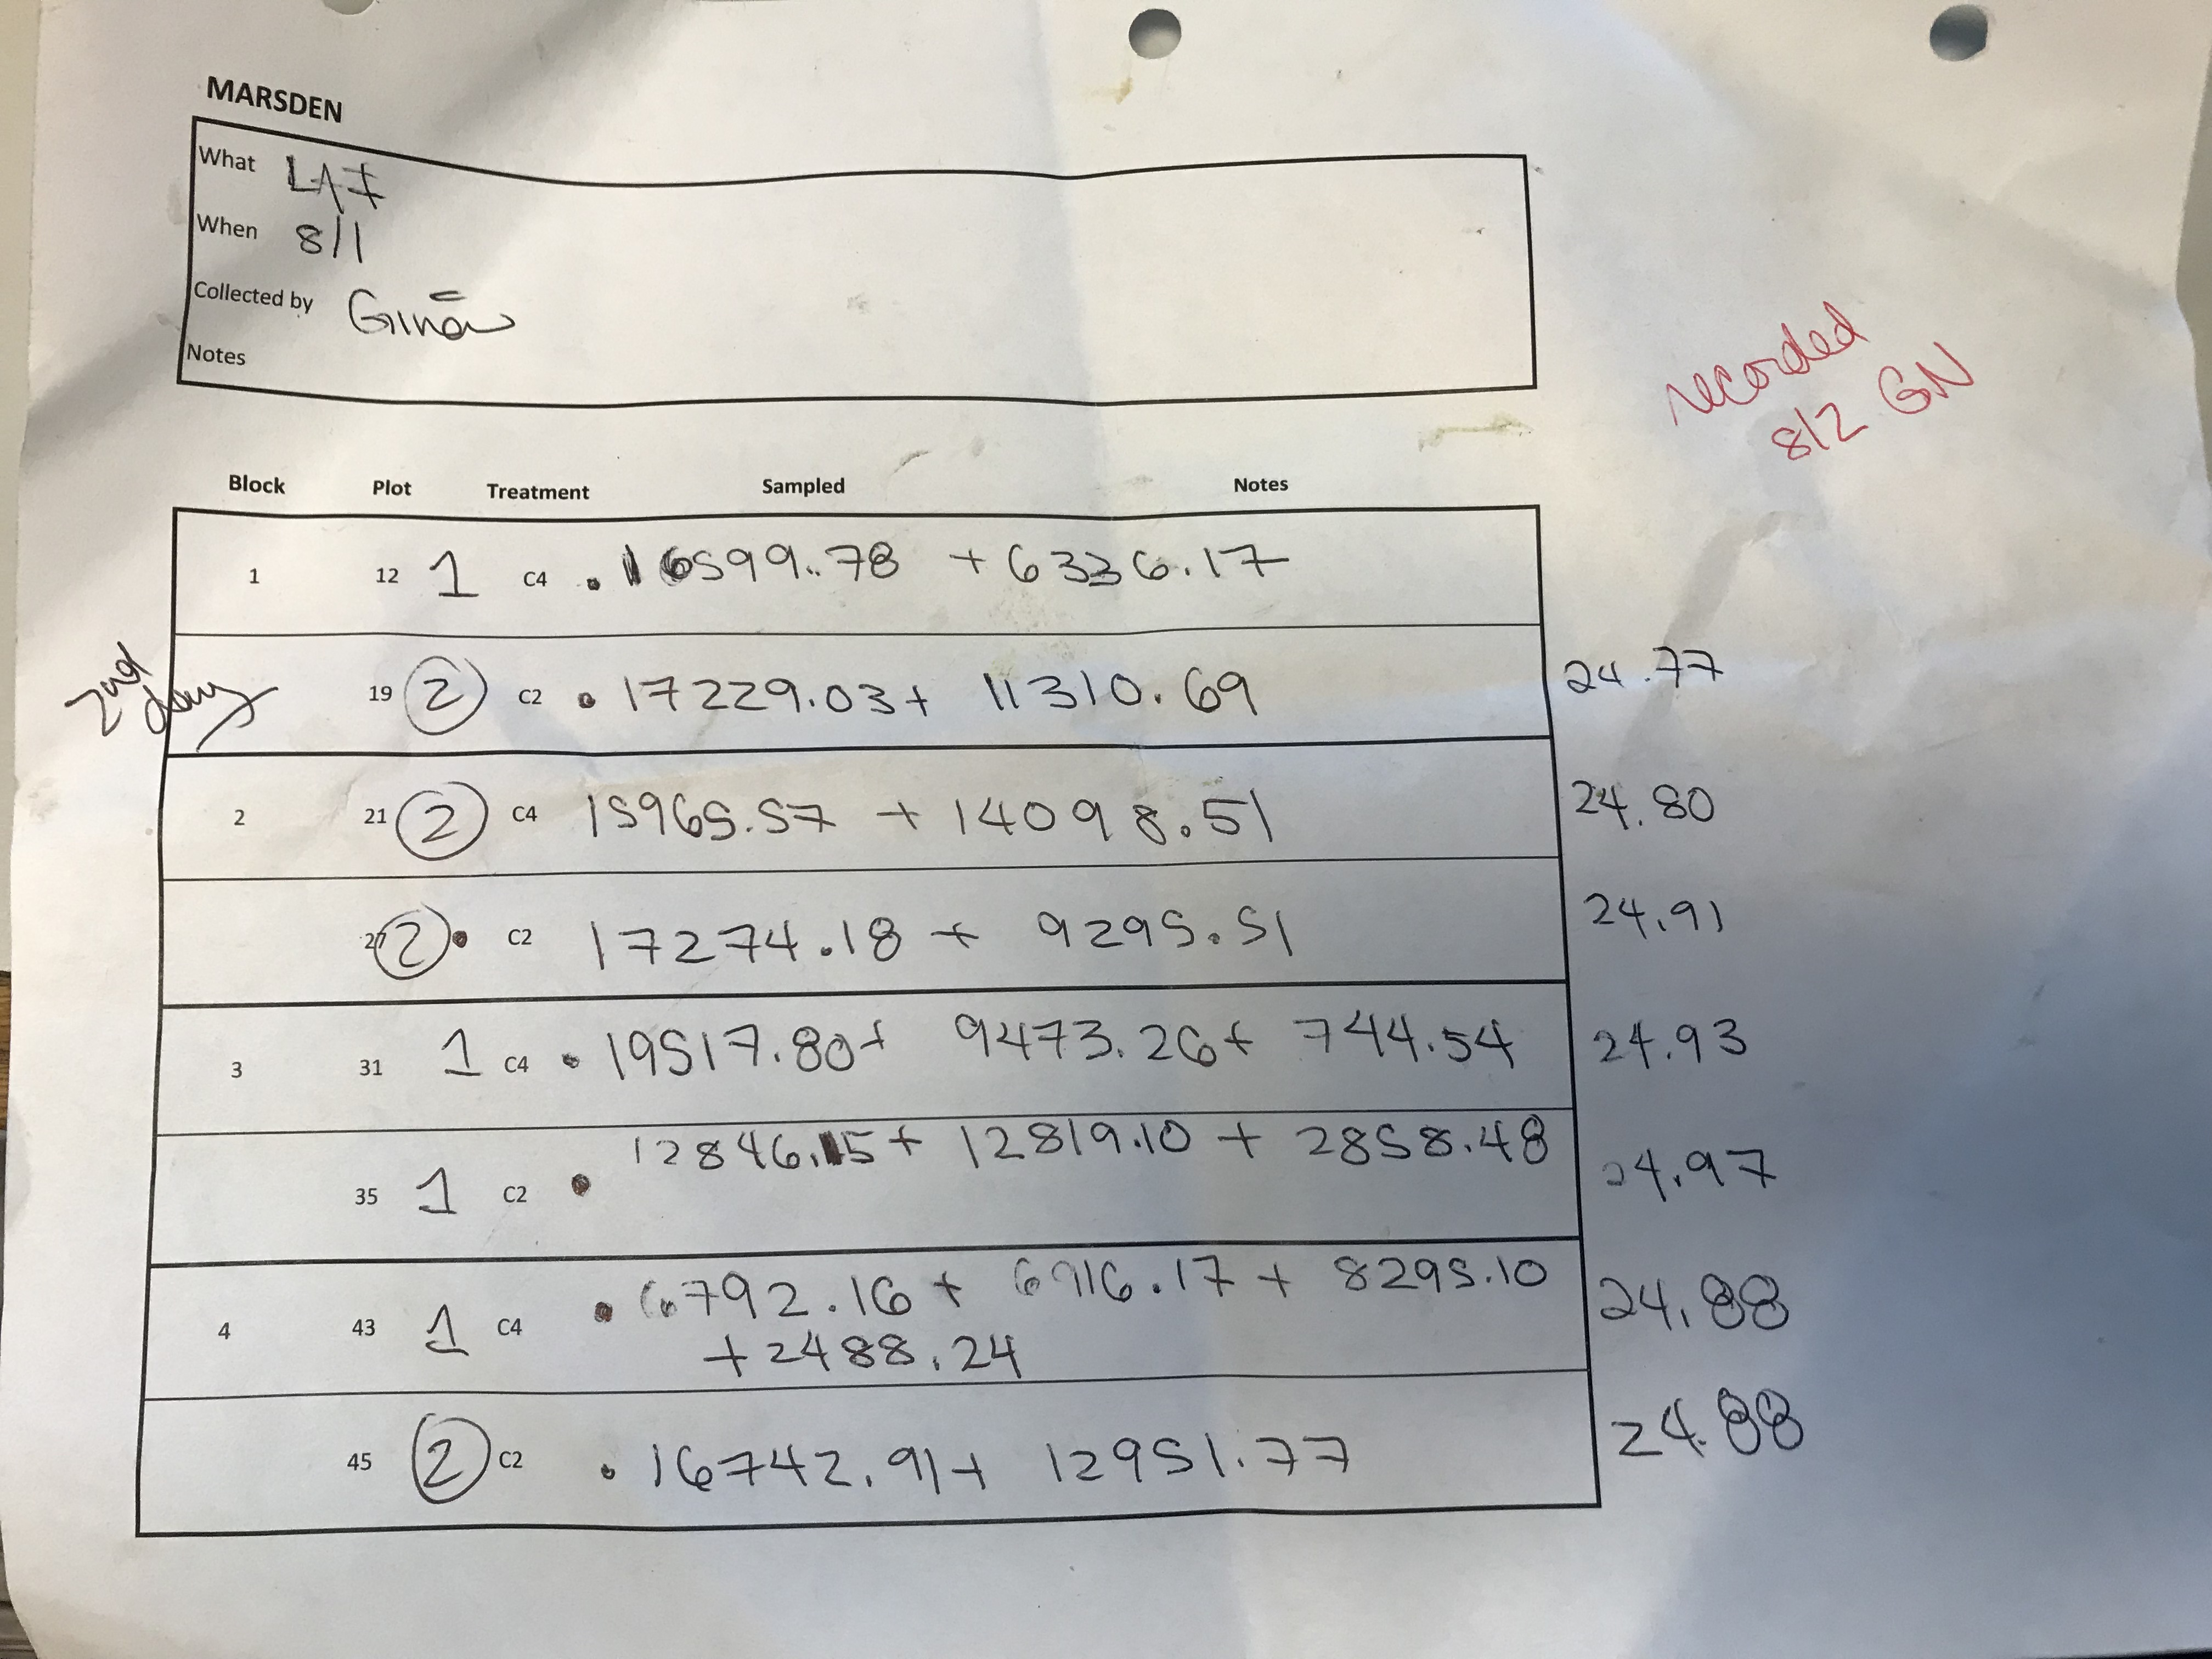 MARSDEN
What LAI
When 8/1
Collected by Gina
Notes
recorded
8/2 GN
Block Plot Treatment Sampled Notes
1 12 1 C4 . 16599.78 + 6336.17
2nd day 19 2 C2 . 17229.03 + 11310.69 24.77
2 21 2 C4 15965.57 + 14098.51 24.80
27 2 . C2 17274.18 + 9295.51 24.91
3 31 1 C4 . 19517.80 + 9473.26 + 744.54 24.93
35 1 C2 . 12846.15 + 12819.10 + 2858.48 24.97
4 43 1 C4 . 6792.16 + 6916.17 + 8295.10 24.88
+ 2488.24
45 2 C2 . 16742.91 + 12951.77 24.88